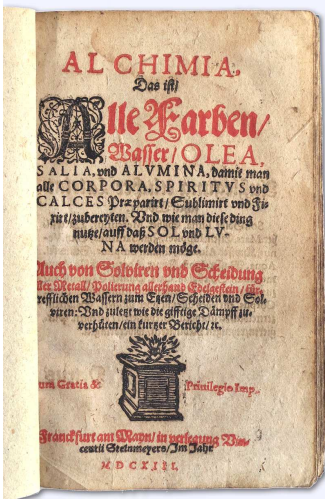 ALCHIMIA,
Das ist/
Alle Farben/
Wasser/ OLEA,
SALIA, vnd ALVMINA, damit man
alle CORPORA, SPIRITVS vnd
CALCES Præparirt/ Sublimirt vnd Fi-
xirt/ zubereyten. Vnd wie man diese ding
nutze/ auff daß SOL vnd LV-
NA werden möge.
Auch von Solviren vnd Scheidung
aller Metall/ Polierung allerhand Edelgestein/ für-
trefflichen Wassern zum Etzen/ Scheiden vnd Sol-
viren: Vnd zuletzt wie die gifftige Dämpff zu-
verhüten/ ein kurtzer Bericht/ ꝛc.
Cum Gratia & Privilegio Imp.
Franckfurt am Mayn/ in verlegung Vin-
centii Steinmeyers/ Im Jahr